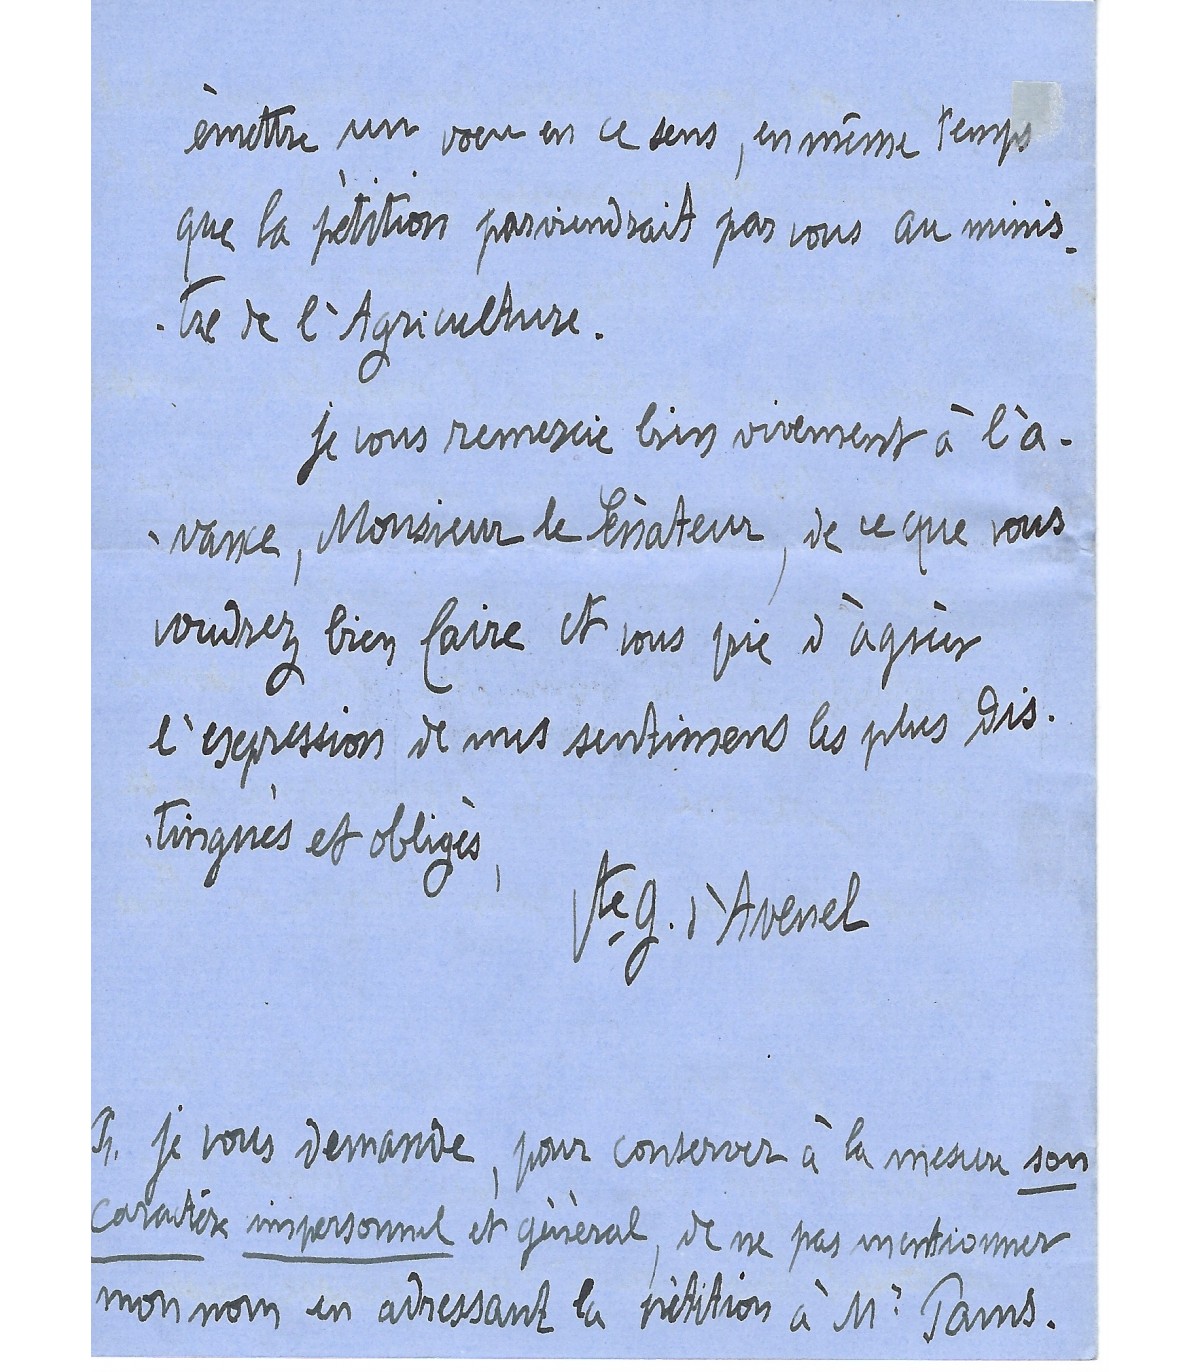 émettre un voeu en ce sens, en même temps
que la pétition parviendrait par vous au minis-
-tre de l'Agriculture.
je vous remercie bien vivement à l'a-
-vance, Monsieur le Sénateur, de ce que vous
voudrez bien faire et vous prie d'agréer
l'expression de mes sentimens les plus dis-
-tingués et obligés,
Vte G. d'Avenel
P.S. je vous demande, pour conserver à la mesure son
caractère impersonnel et général, de ne pas mentionner
mon nom en adressant la pétition à Mr Pams.